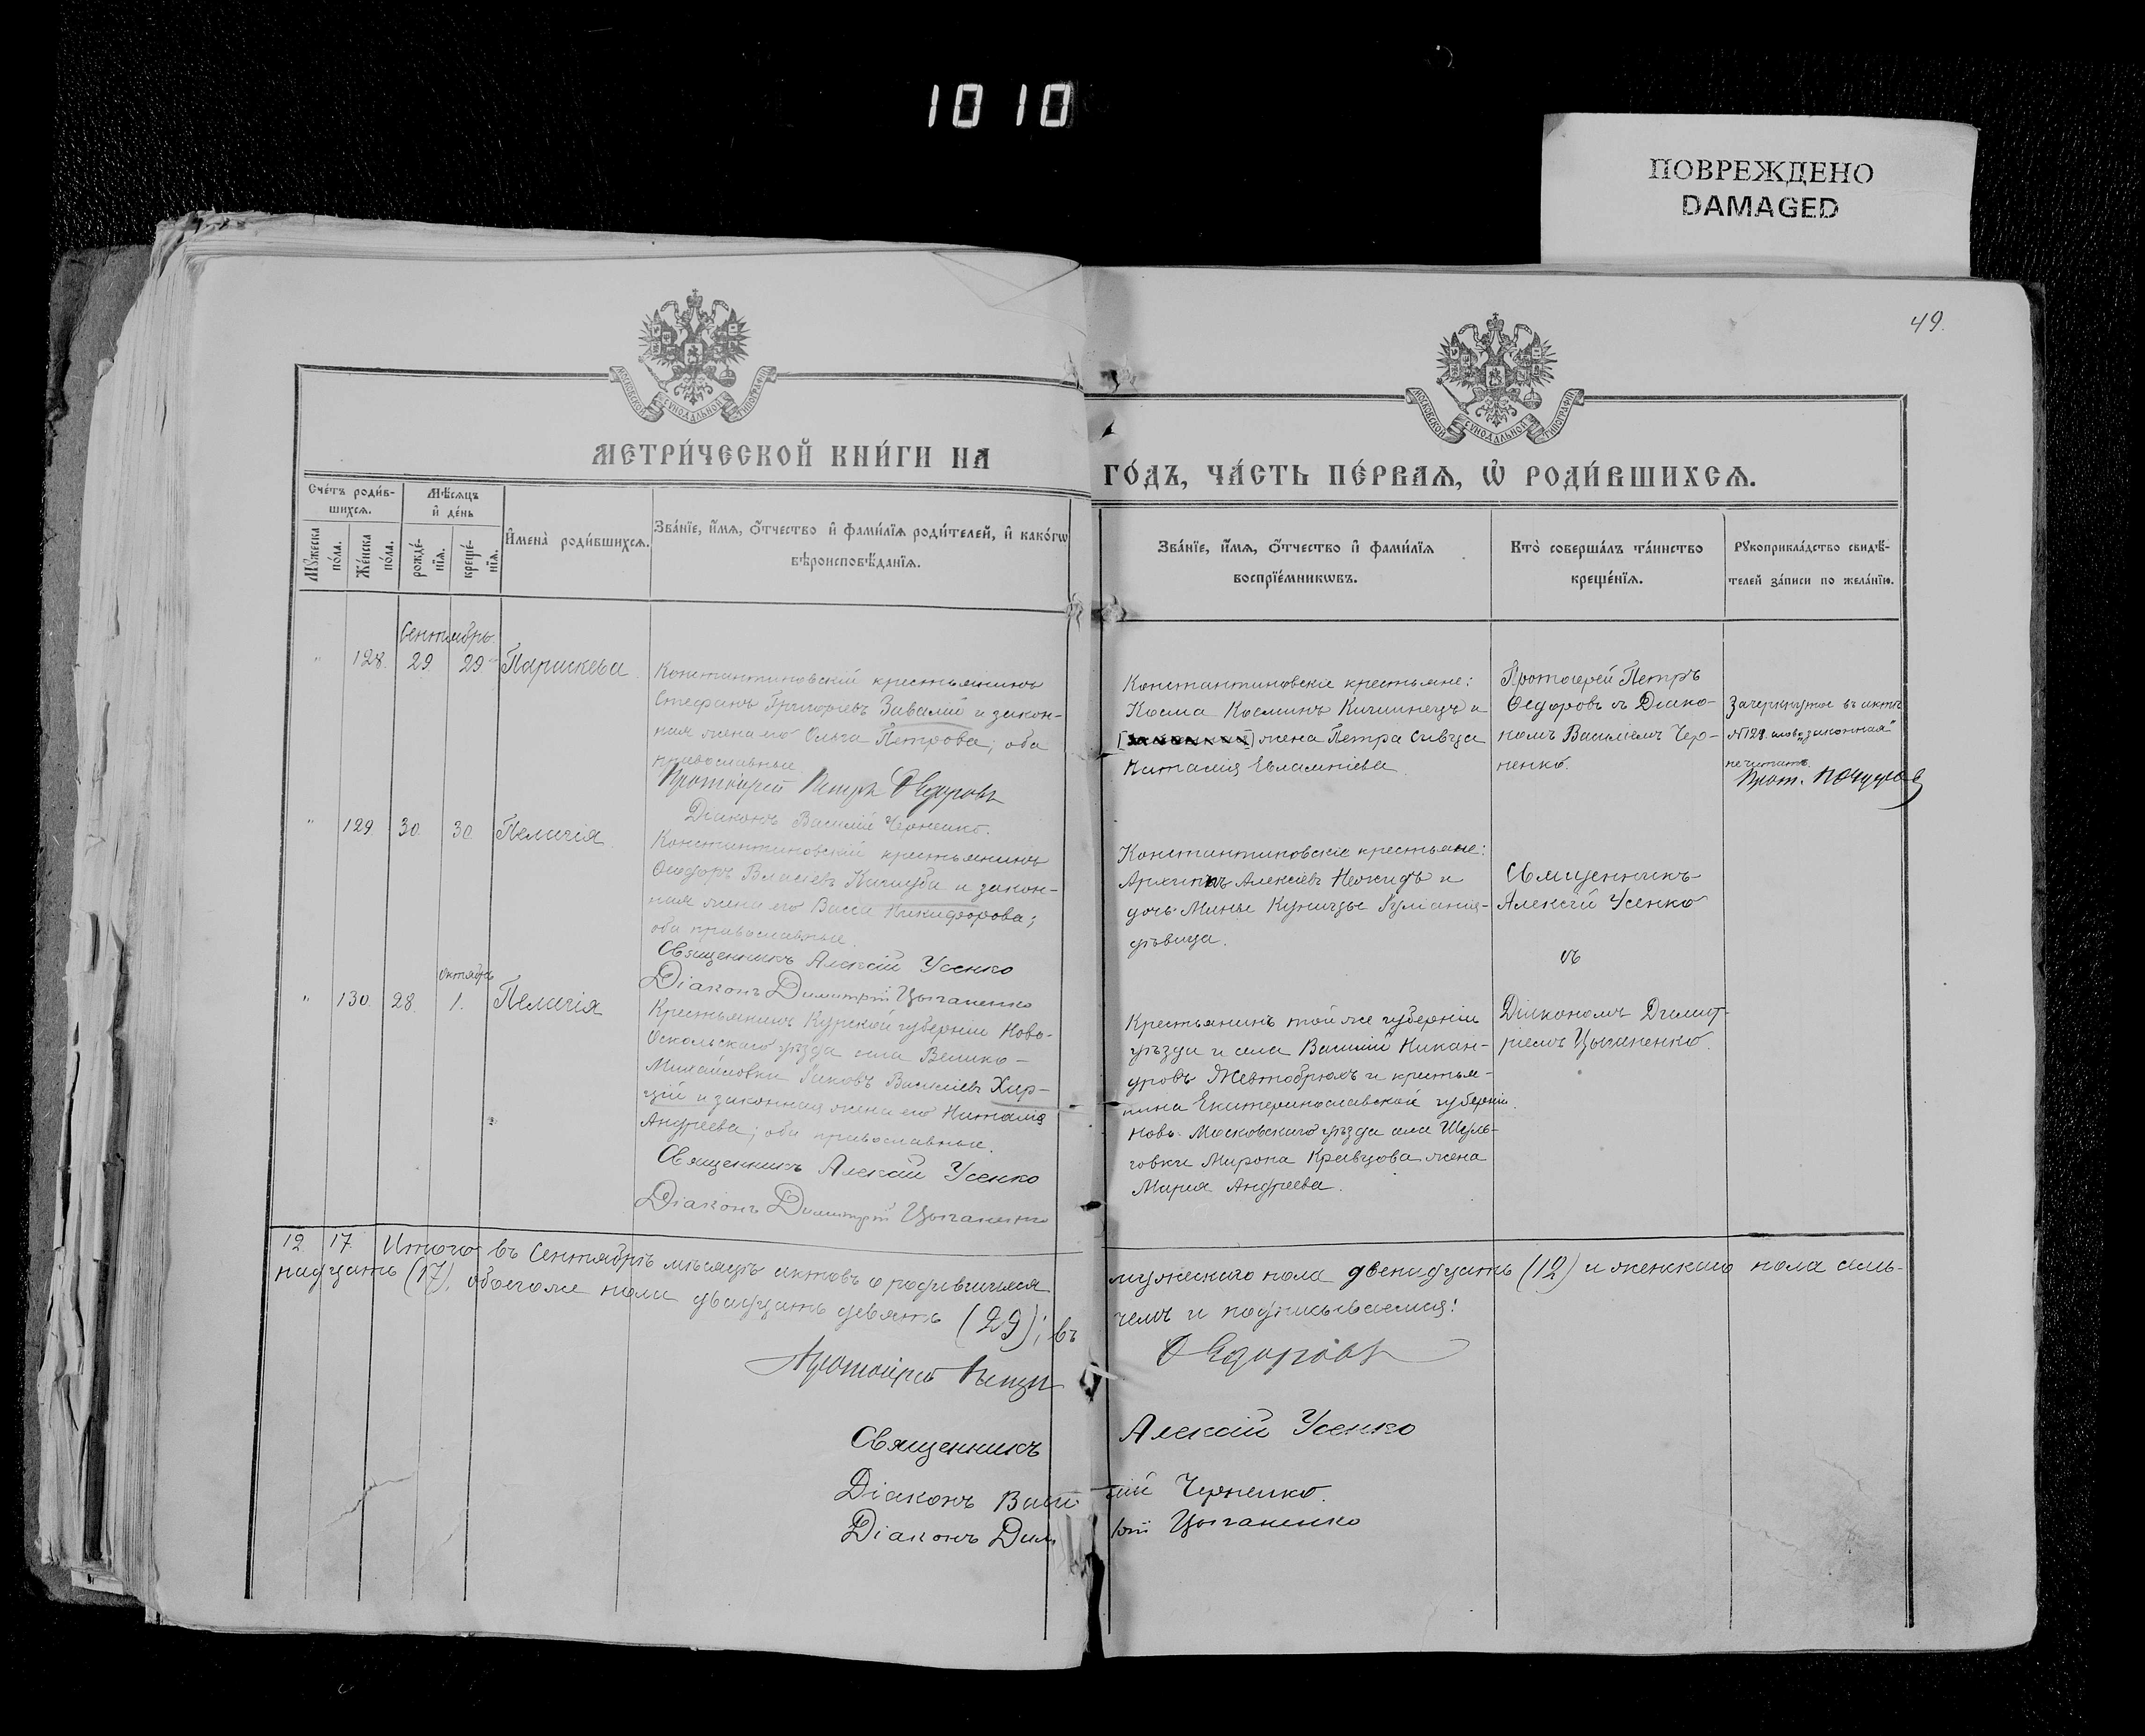 1010
ПОВРЕЖДЕНО
DAMAGED
49.
МОСКОВСКОЙ СѴНОДАЛЬНОЙ ТИПОГРАФІИ
МОСКОВСКОЙ СѴНОДАЛЬНОЙ ТИПОГРАФІИ
МЕТРИ́ЧЕСКОЙ КНИ́ГИ НА
ГО́ДЪ, ЧА́СТЬ ПЕ́РВАѦ, Ѡ҆ РОДИ́ВШИХСѦ.
Сче́тъ роди́в-
шихсѧ.
Мꙋ́жеска по́ла.
Же́нска по́ла.
Мѣ́сѧцъ
и҆ де́нь
рожде́-нїѧ.
креще́-нїѧ.
И҆мена̀ роди́вшихсѧ.
Зва́нїе, и҆́мѧ, ѻ҆́тчество и҆ фами́лїѧ роди́телей, и҆ како́гѡ
вѣроисповѣ́данїѧ.
Зва́нїе, и҆́мѧ, ѻ҆́тчество и҆ фами́лїѧ
воспрїе́мникѡвъ.
Кто̀ соверша́лъ та́инство
креще́нїѧ.
Рꙋкоприкла́дство свидѣ́-
телей за́писи по жела́нїю.
Сентябрь.
" 128. 29. 29. Параскева.
Константиновскій крестьянинъ
Стефанъ Григорьевъ Завалій и закон-
ная жена его Ольга Петрова; оба
православные.
Протоіерей Петръ Ѳедоровъ
Діаконъ Василій Черненко.
Константиновскіе крестьяне:
Косма Косминъ Кишинецъ и
жена Петра Сивца
Наталія Евлампіева.
Протоіерей Петръ
Ѳедоровъ съ Діако-
номъ Василіемъ Чер-
ненко.
Зачеркнутое въ актѣ
№128. слово „законная"
не читать.
Прот. П Ѳедоров
" 129 30. 30. Пелагія.
Константиновскій крестьянинъ
Ѳеодоръ Власіевъ и закон-
ная жена его Васса Никифорова;
оба православные.
Священникъ Алексій Усенко
Діаконъ Димитрій Цыганенко
Константиновскіе крестьяне:
Архипъ Алексіевъ Нежидъ и
дочь Мины Куницы Гуліанія-
дѣвица.
Священникъ
Алексій Усенко
съ
Діакономъ Димит-
ріемъ Цыганенко.
октябрь
" 130. 28. 1. Пелагія
Крестьянинъ Курской губерніи Ново-
Оскольскаго уѣзда села Велико-
Михайловки Іаковъ Василіевъ Хар-
цій и законная жена его Наталія
Андреева; оба православные.
Священникъ Алексій Усенко
Діаконъ Димитрій Цыганенко
Крестьянинъ той же губерніи
уѣзда и села Василій Никан-
дровъ Жевтобрюхъ и крестья-
нина Екатеринославской губерніи
Ново-Московскаго уѣзда села Шуль-
говки Мирона Кравцова жена
Марія Андреева.
12 17. Итого въ Сентябрѣ мѣсяцѣ актовъ о родившихся мужескаго пола двенадцать (12) и женскаго пола семь-
надцать (17), обоего же пола двадцать девять (29); въ чемъ и подписываемся:
Протоіерей Петръ Ѳедоровъ
Священникъ Алексій Усенко
Діаконъ Василій Черненко.
Діаконъ Дим трій Цыганенко